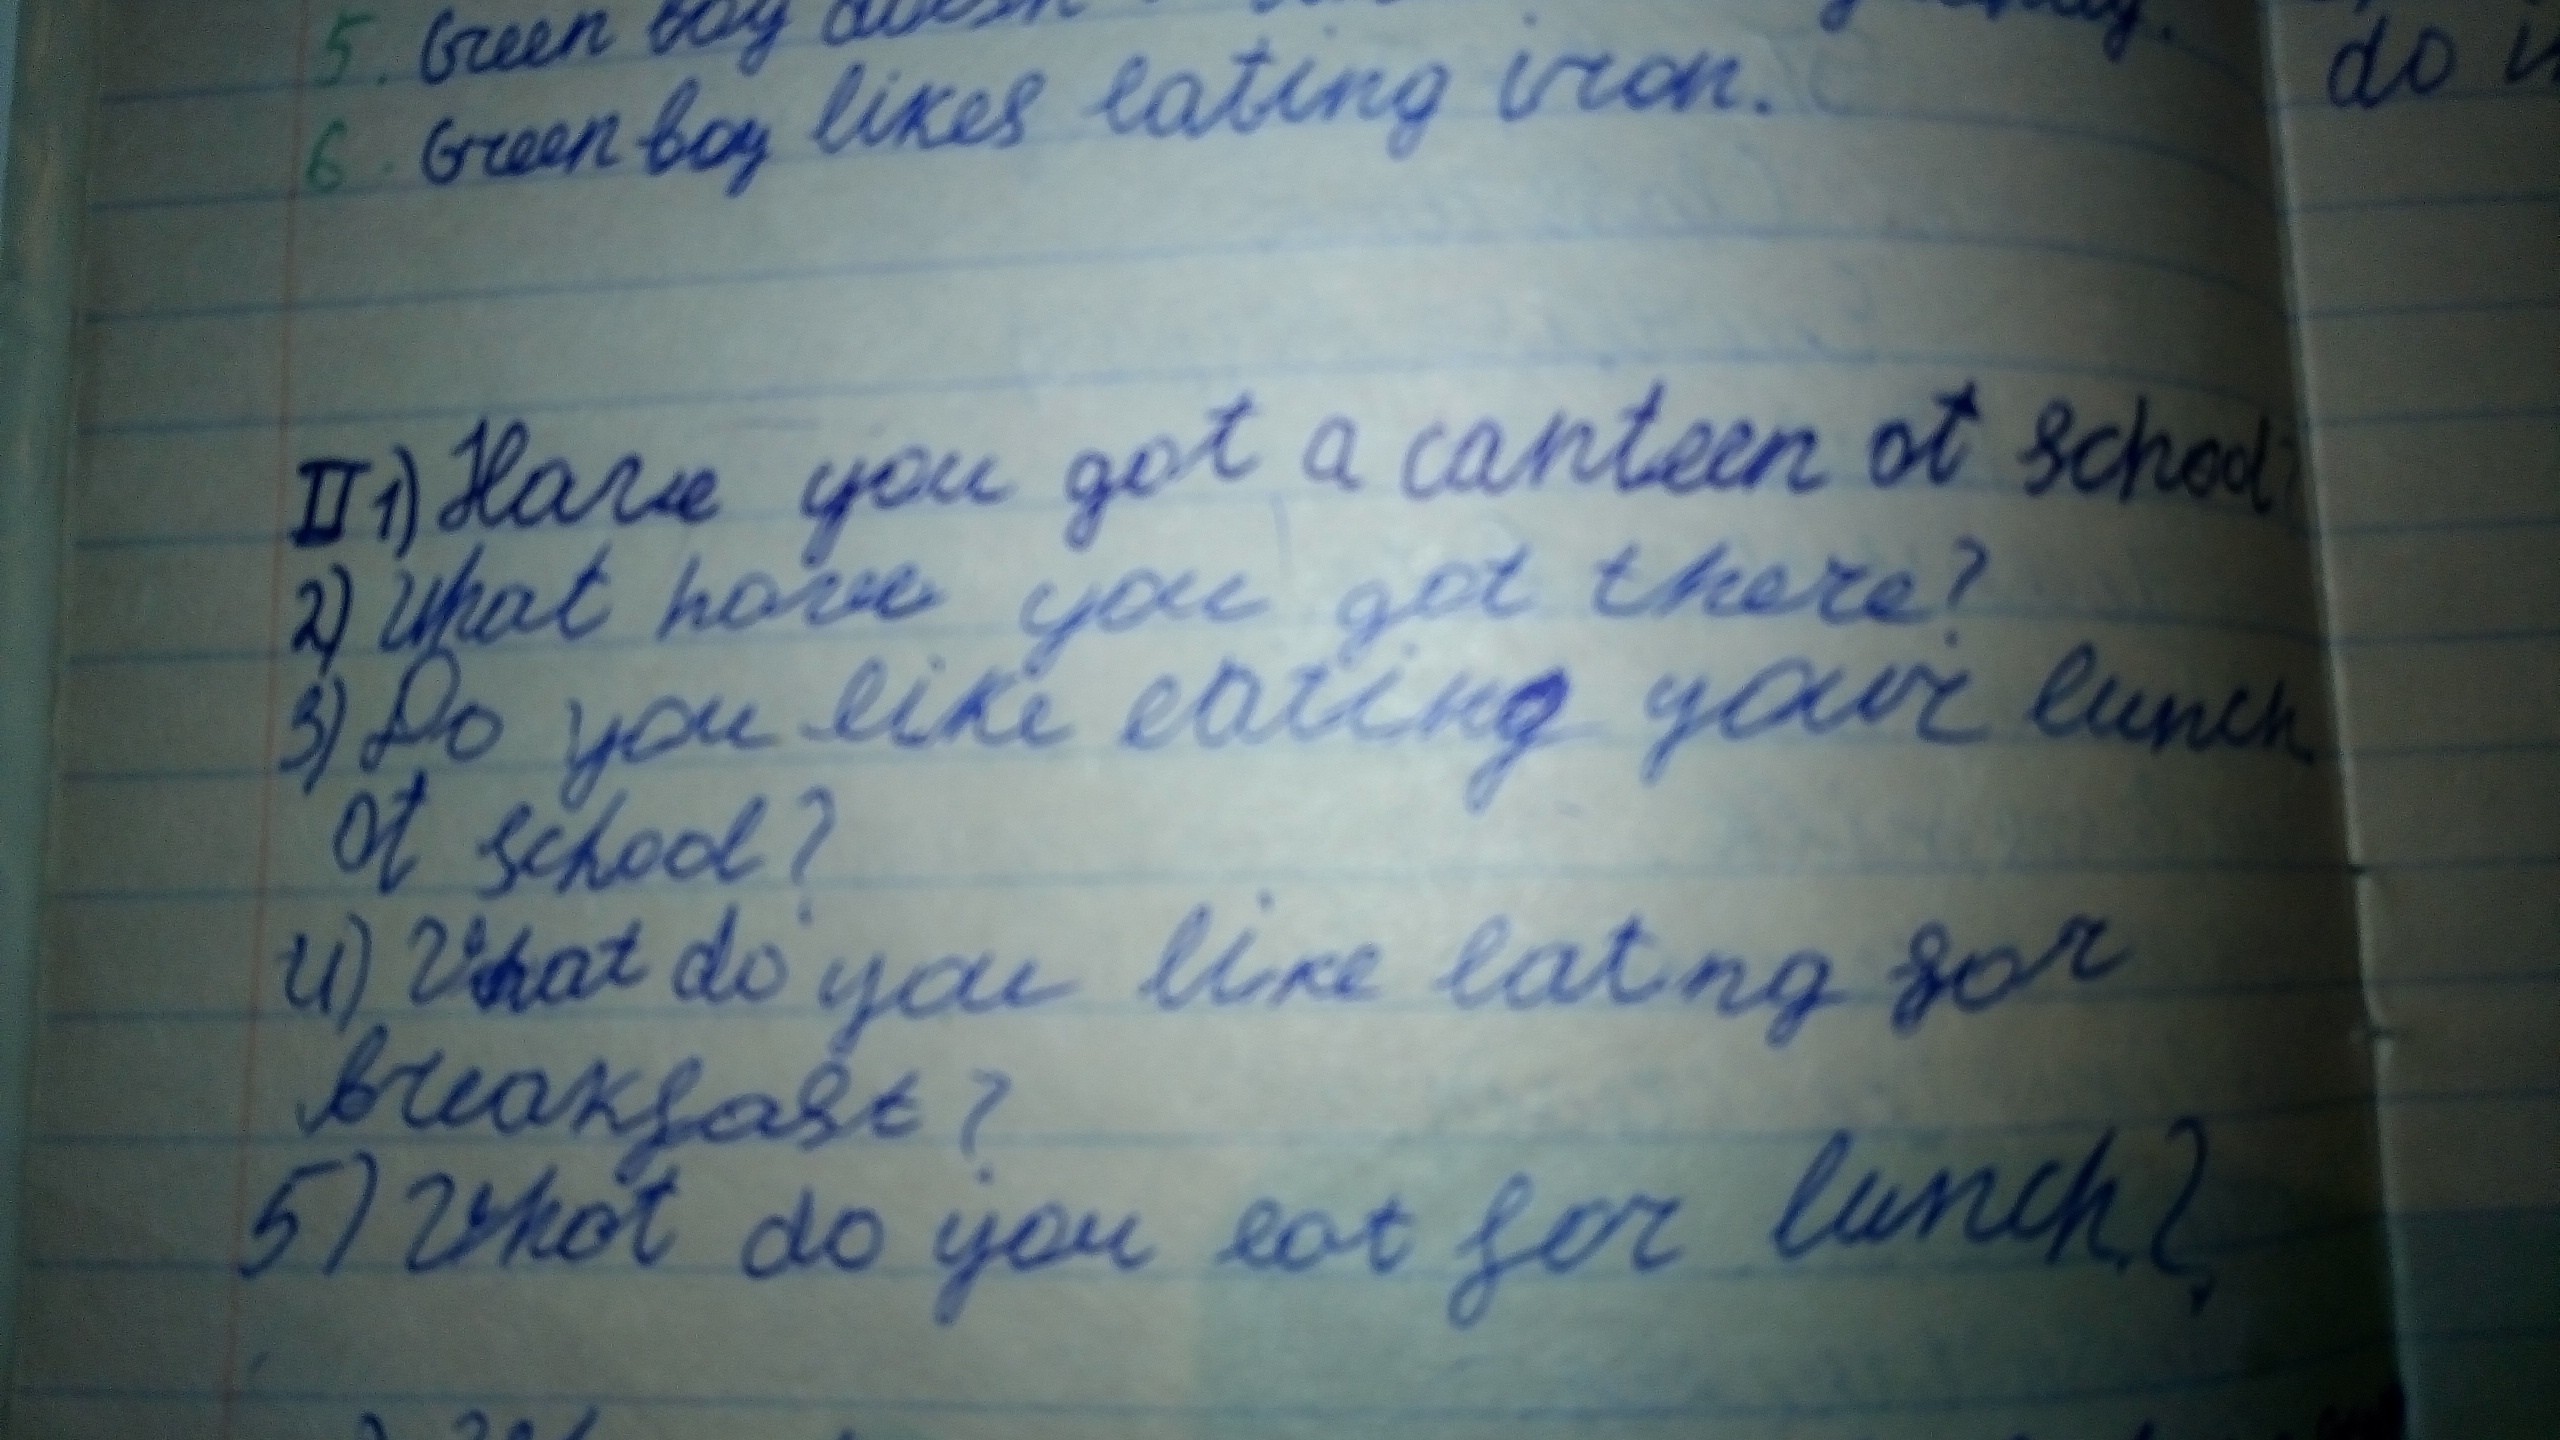 5. Green boy doesn
6. Green boy likes eating iron.
do
II 1) Have you got a canteen at school?
2) What have you got there?
3) Do you like eating your lunch
at school?
4) What do you like eatng for
breakfast?
5) What do you eat for lunch?